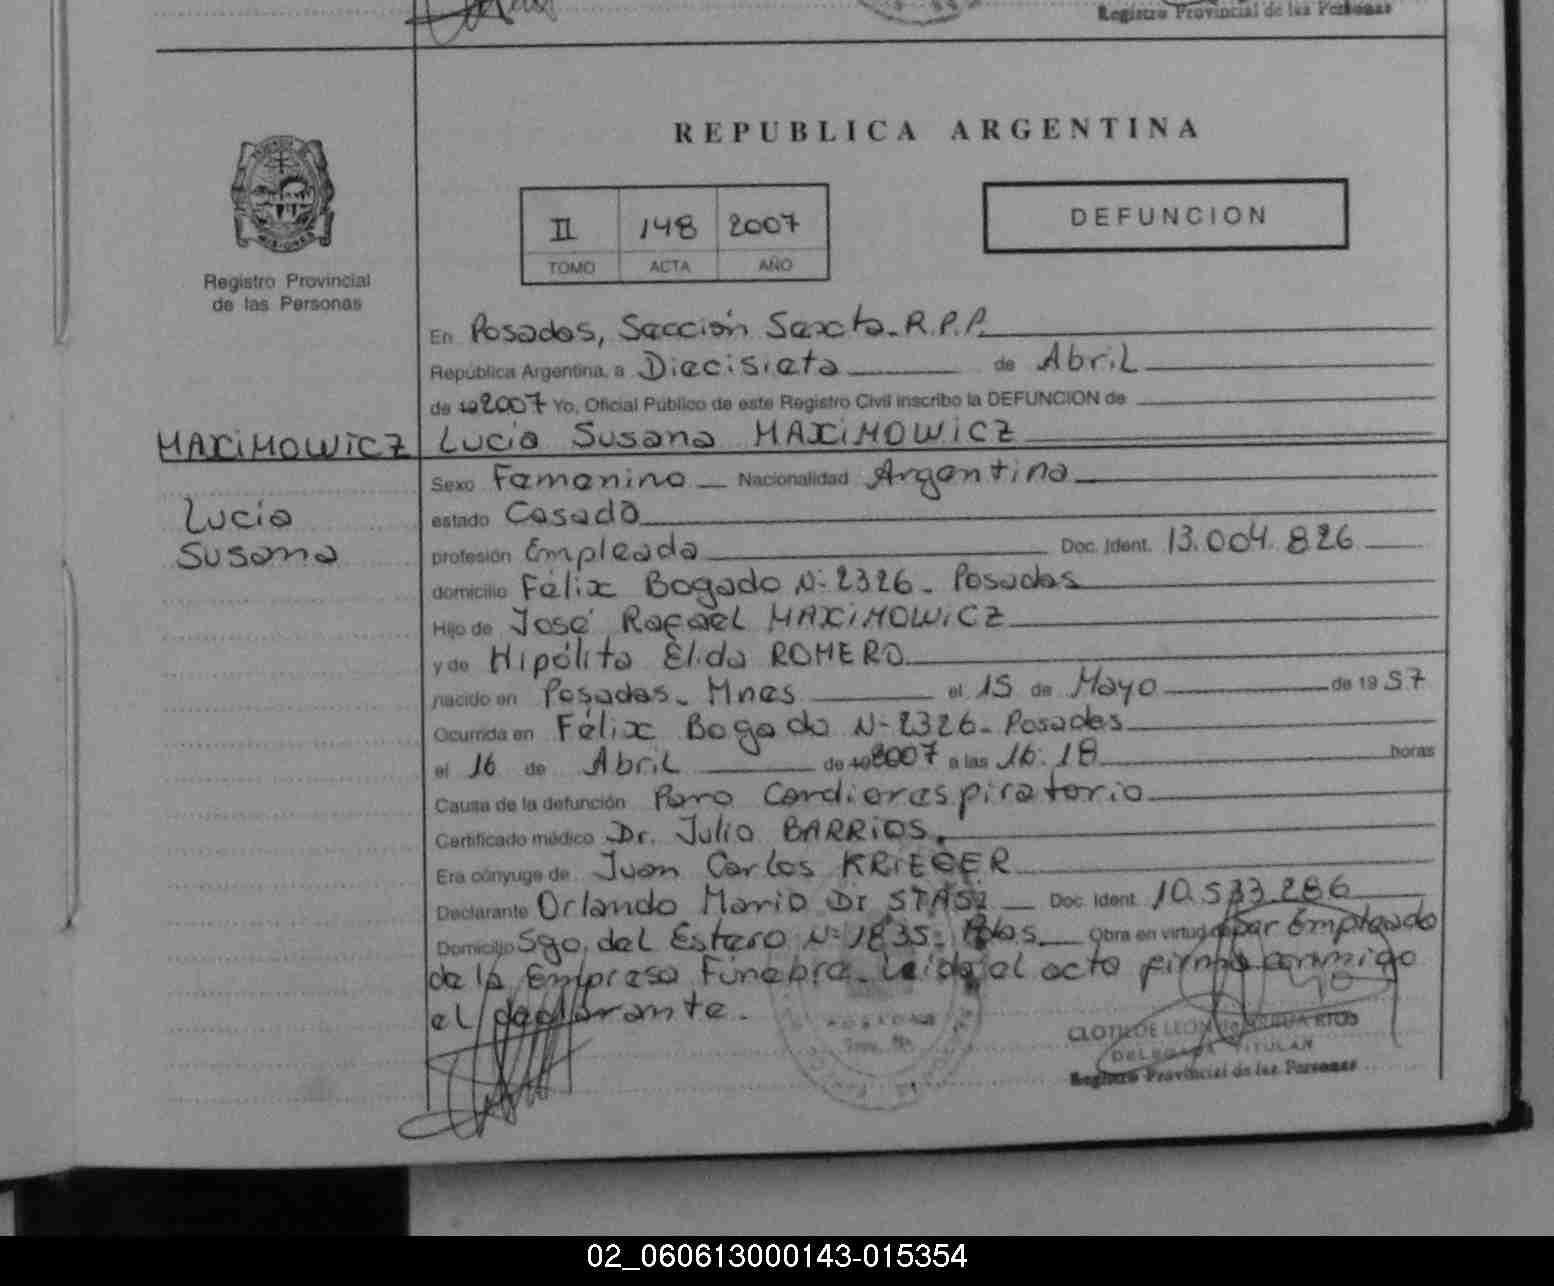 Registro Provincial de las Personas
REPUBLICA ARGENTINA
II 148 2007
TOMO ACTA AÑO
DEFUNCION
MISIONES
Registro Provincial
de las Personas
En Posadas, Sección Sexta. R.P.P.
República Argentina, a Diecisiete de Abril
de 19 2007 Yo, Oficial Público de este Registro Civil inscribo la DEFUNCION de
MAXiMOWiCZ Lucía Susana MAXiMOWiCZ
Lucía
Susana
Sexo Femenino Nacionalidad Argentina
estado Casada
profesión Empleada Doc. Ident. 13.004.826
domicilio Félix Bogado N: 2326. Posadas
Hijo de José Rafael MAXiMOWiCZ
y de Hipólita Élida ROMERO
nacido en Posadas. Mnes el 15 de Mayo de 19 57
Ocurrida en Félix Bogado N- 2326. Posadas
el 16 de Abril de 19 2007 a las 16:18 horas
Causa de la defunción Paro Cardiorespiratorio
Certificado médico Dr. Julio BARRiOS.
Era cónyuge de Juan Carlos KRiEGER
Declarante Orlando Mario Di STASi Doc. Ident. 10.533.286
Domicilio Sgo. del Estero N: 1835- Pdas Obra en virtud de ser Empleado
de la Empresa Fúnebre. Leída el acta firma conmigo
el declarante.
POSADAS
CLOTILDE LEON
DELEGADA TITULAR
Registro Provincial de las Personas
02_060613000143-015354